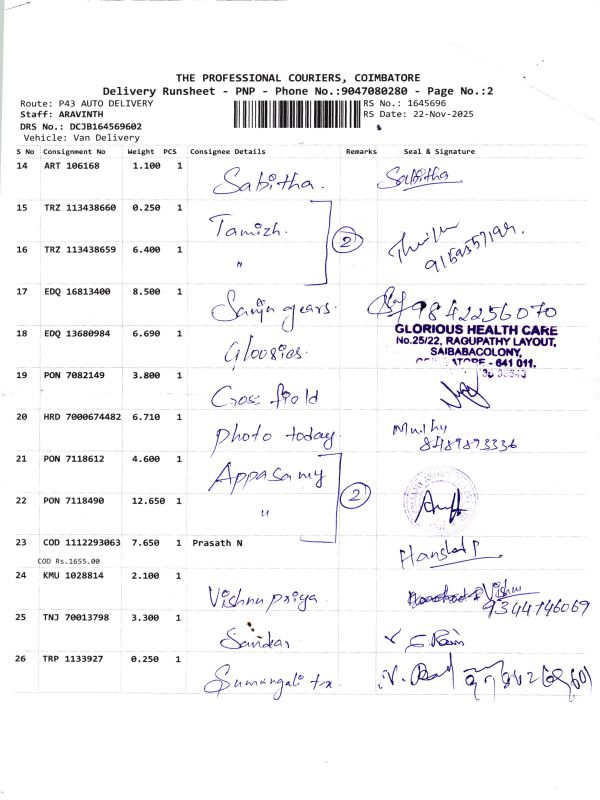 THE PROFESSIONAL COURIERS, COIMBATORE
Delivery Runsheet - PNP - Phone No.:9047080280 - Page No.:2
Route: P43 AUTO DELIVERY
RS No.: 1645696
Staff: ARAVINTH
RS Date: 22-Nov-2025
DRS No.: DCJB164569602
Vehicle: Van Delivery
S No Consignment No Weight PCS Consignee Details Remarks Seal & Signature
14 ART 106168 1.100 1 Sabitha. Sabitha
15 TRZ 113438660 0.250 1 Tamizh.
2
16 TRZ 113438659 6.400 1 "
17 EDQ 16813400 8.500 1 Sanju gears. 9842256070
18 EDQ 13680984 6.690 1 Glousies.
GLORIOUS HEALTH CARE
No.25/22, RAGUPATHY LAYOUT,
SAIBABACOLONY,
641 011.
19 PON 7082149 3.800 1 Cross field
20 HRD 7000674482 6.710 1 Photo today. Muthy
8489893336
21 PON 7118612 4.600 1 Appasamy
2
22 PON 7118490 12.650 1 "
23 COD 1112293063 7.650 1 Prasath N
COD Rs.1655.00
24 KMU 1028814 2.100 1 Vishnu priya Vishnu
9344746069
25 TNJ 70013798 3.300 1 Sandar
26 TRP 1133927 0.250 1 Sumangali tex